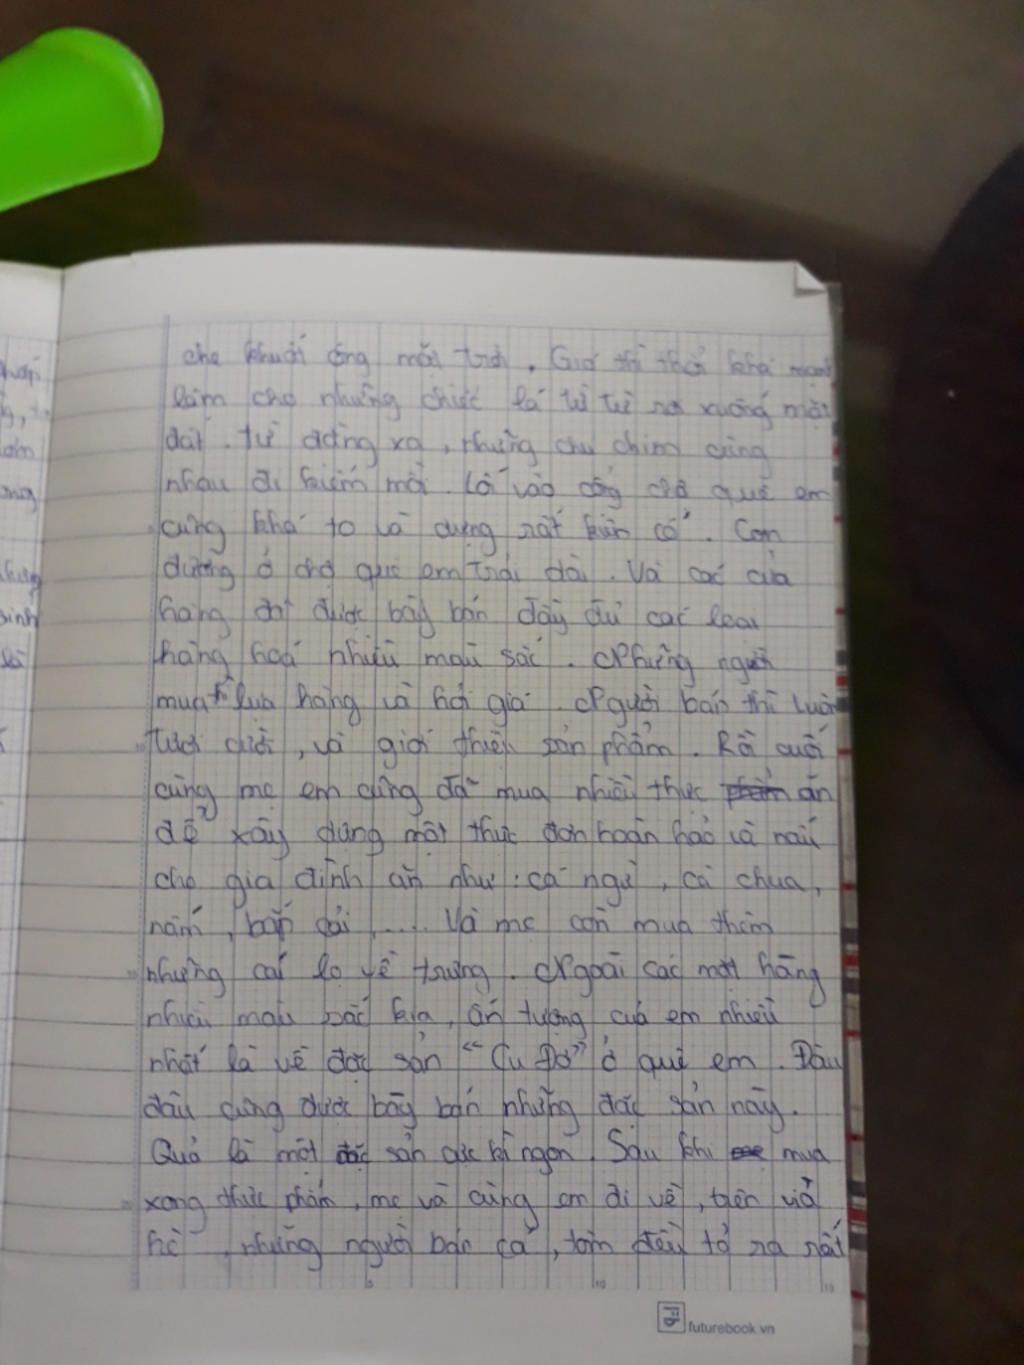 che khuất ông mặt trời. Gió thì thổi khá mạnh
làm cho những chiếc lá từ từ rơi xuống mặt
đất. từ đằng xa, những chú chim cùng
nhau đi kiếm mồi. Lối vào cổng chợ quê em
cũng khá to và dựng rất kiên cố. Con
đường ở chợ quê em trải dài. Và các cửa
hàng đã được bày bán đầy đủ các loại
hàng hoá nhiều màu sắc. Những người
mua thì lựa hàng và hỏi giá. Người bán thì luôn
tươi cười, và giới thiệu sản phẩm. Rồi cuối
cùng mẹ em cũng đã mua nhiều thức ăn
để xây dựng một thực đơn hoàn hảo và nấu
cho gia đình ăn như: cá ngừ, cà chua,
nấm, bắp cải,.... Và mẹ còn mua thêm
những cái lọ về trưng. Ngoài các mặt hàng
nhiều màu sắc kia, ấn tượng của em nhiều
nhất là về đặc sản "Cu Đơ" ở quê em. Đâu
đâu cũng được bày bán những đặc sản này.
Quả là một đặc sản cực kì ngon. Sau khi mua
xong thực phẩm, mẹ và cùng em đi về, trên vỉa
hè, những người bán cá, tôm đều tỏ ra rất
futurebook.vn